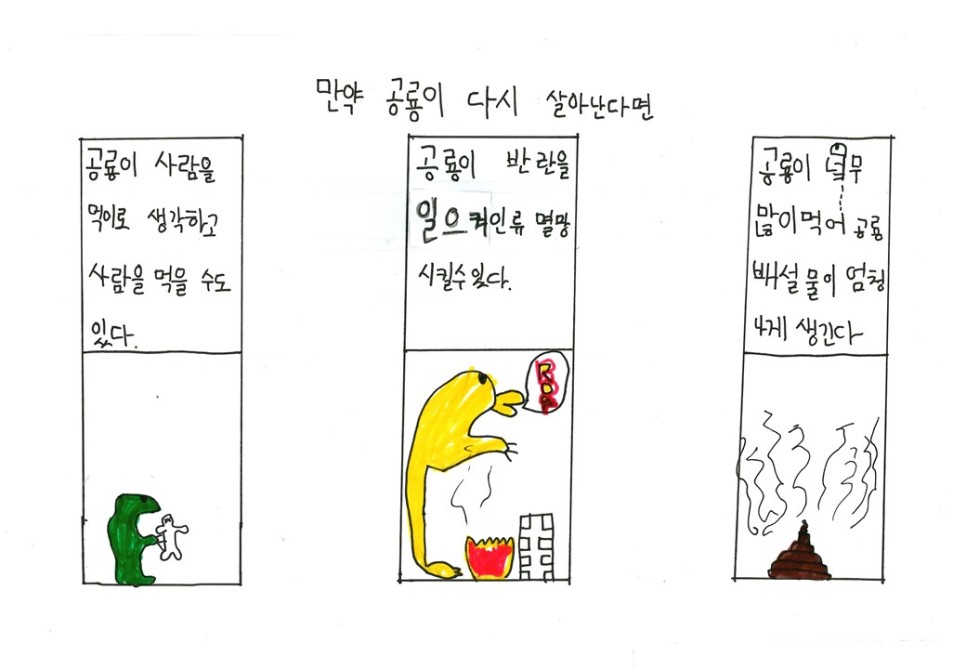 만약 공룡이 다시 살아난다면
공룡이 사람을
먹이로 생각하고
사람을 먹을 수도
있다.
공룡이 반란을
일으켜인류 멸망
시킬수있다.
공룡이 너무
많이먹어 공룡
배설물이 엄청
나게 생긴다